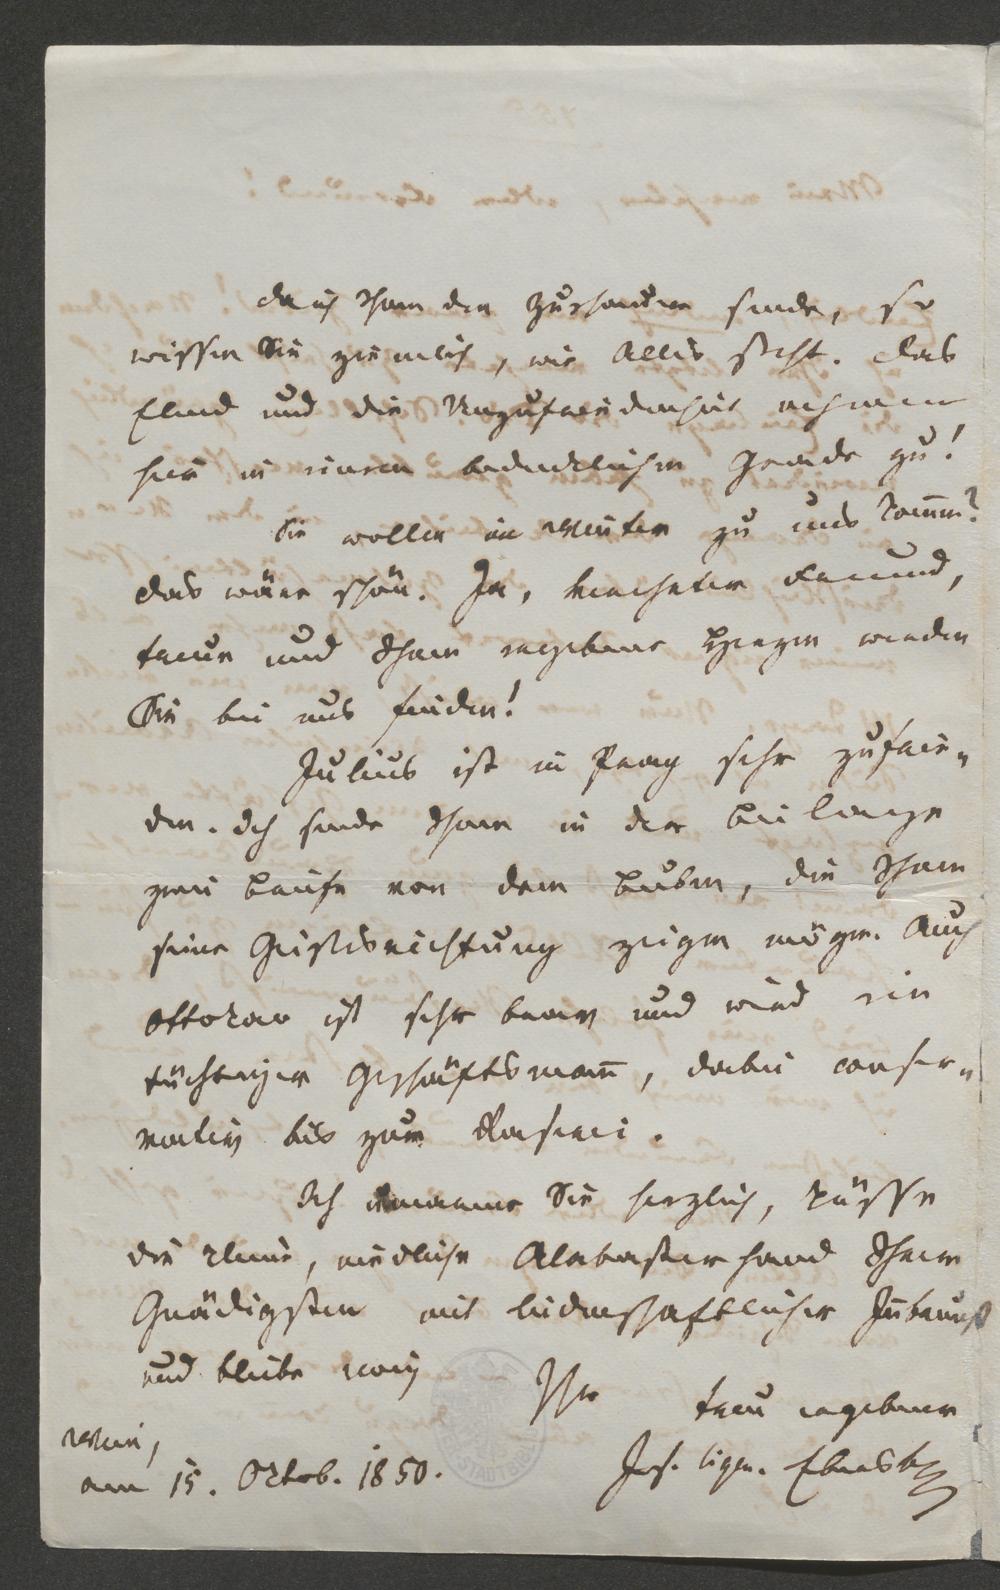 da ich Ihnen den Zuschauer sende, so
wissen Sie ziemlich, wie Alles steht. Das
Elend und die Unzufriedenheit nehmen
hier in einem bedenklichen Grade zu!
Sie wollen im Winter zu uns komm̅?
Das wäre schön. Ja, verehrter Freund,
treue und Ihnen ergebene Herzen werden
Sie bei uns finden!
Julius ist in Prag sehr zufrie-
den. Ich sende Ihnen in der Beilage
zwei Briefe von dem Buben, die Ihnen
seine Geistesrichtung zeigen mögen. Auch
Ottokar ist sehr brav und wird ein
tüchtiger Geschäftsmann̅, dabei conser-
vativ bis zur Raserei.
Ich umarme Sie herzlich, küsse
die kleine, niedliche Alabasterhand Ihrer
Gnädigsten mit leidenschaftlicher Inbrunst
und bleibe ewig
Ihr
treu ergebener
Wien,
am 15. Oktob. 1850.
Jos. Sigm. Ebersberg